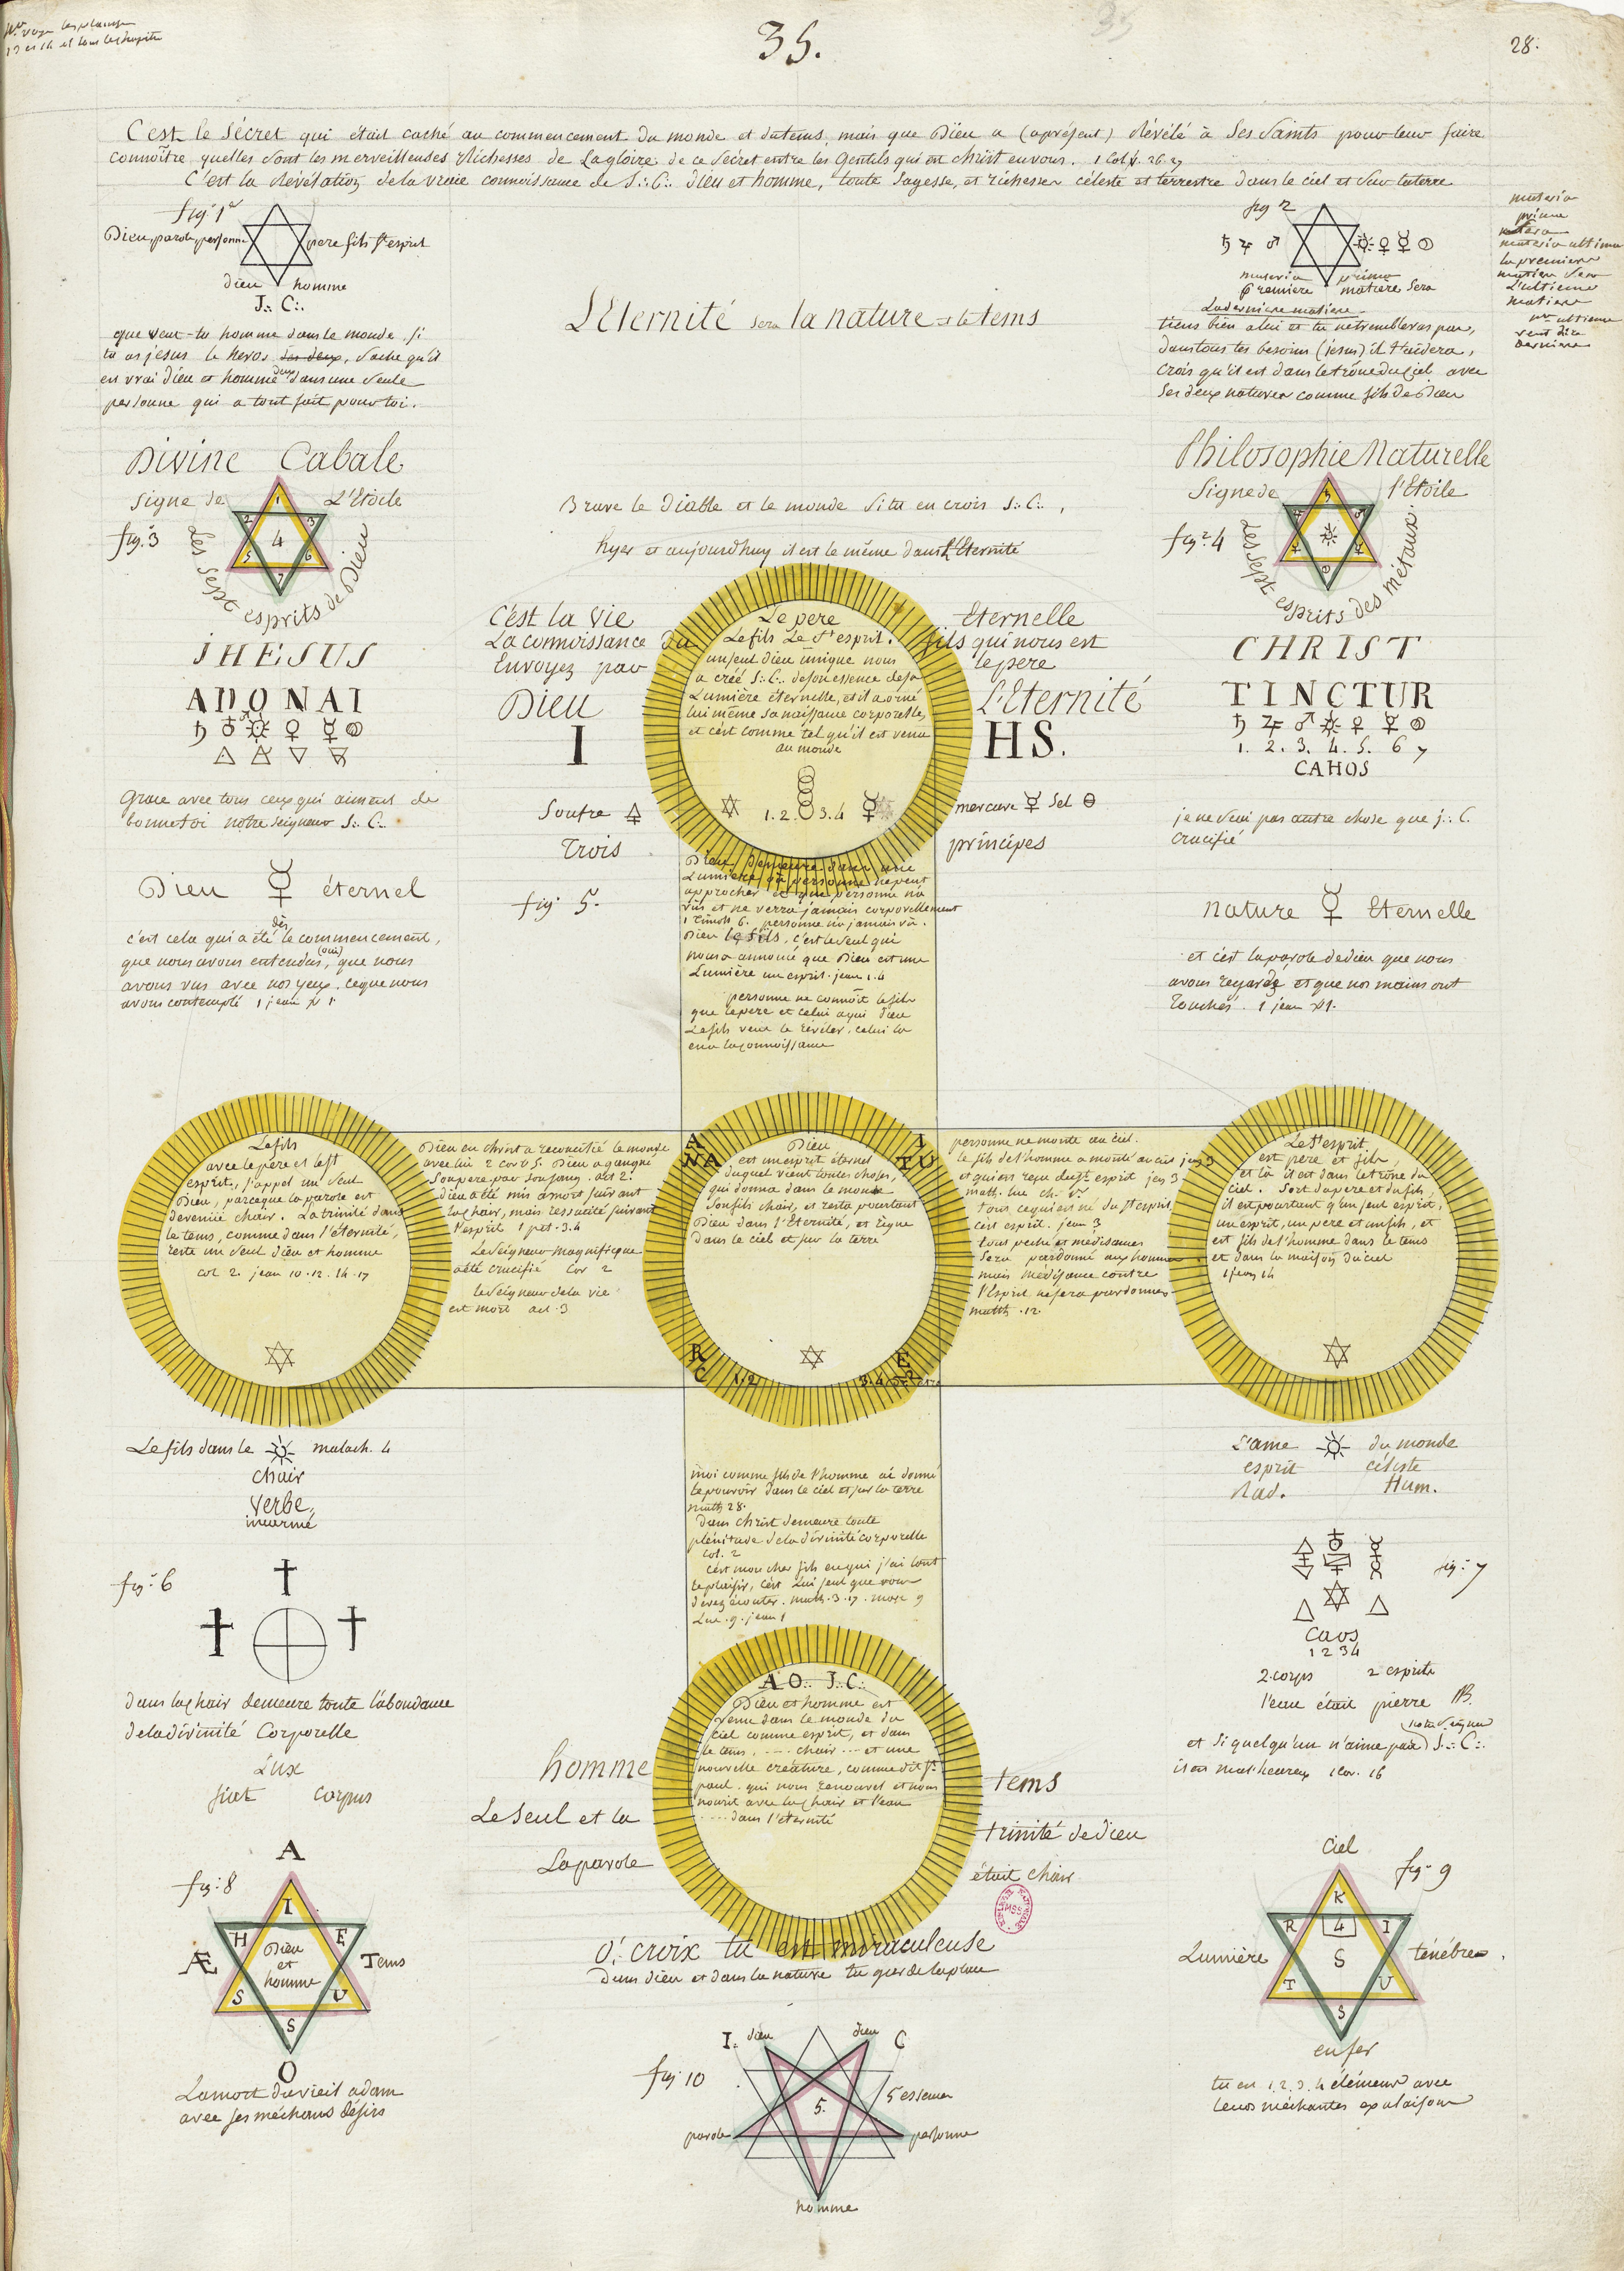 35.
28.
C'est le Sécret qui était caché au commencement du monde et du tems, mais que Dieu a (apresent) Révélé à Ses Saints pour leur faire
connoître quelles sont les merveilleuses Richesses de La gloire de ce Secret entre les Gentils qui est christ en vous. 1 Col. 26. 27
C'est la Révélation de la vraie connoissance de J:. C:. Dieu et homme, toute sagesse, et richesses céleste et terrestre dans le ciel et sur la terre
fig: 1
Dieu parole personne
pere fils St esprit
dieu homme
J:. C:.
que veut-tu homme dans le monde, si
tu as jesus le heros, sache qu'il
est vrai Dieu et homme dans une seule
personne qui a tout fait pour toi.
fig 2
♄ ♃ ♂ ☼ ♀ ☿
materia prima
premiere matiere sera
La derniere matiere
tiens bien a lui et tu ne trembleras pas,
dans tous tes besoins (jesus) il t'aidera,
crois qu'il est dans le trône du Ciel avec
Ses deux natures comme fils de Dieu
materia
prima
materia ultima
la premiere
matiere sera
L'ultieme
matiere
ultieme
veut dire
derniere
L'Eternité sera la nature et le tems
Divine Cabale
Signe de L'Etoile
fig: 3
1
2 3
4
5 6
7
Les Sept esprits de Dieu
Philosophie Naturelle
Signe de l'Etoile
fig: 4
Les Sept esprits des métaux.
Brave le Diable et le monde si tu en crois J:. C:.,
hyer et aujourdhuy il est le même dans L'Eternité
JHESUS
ADONAI
△ ▽
CHRIST
TINCTUR
♄ ♃ ♂ ☼ ♀ ☿
1. 2. 3. 4. 5. 6 7
CAHOS
C'est la Vie Eternelle
La connoissance du fils qui nous est
Envoyez par le pere
Dieu L'Eternité
I HS.
Le pere
Le fils Le St esprit.
un seul Dieu unique nous
a créé J:. C:. de son essence de sa
Lumière éternelle, et il a orné
lui même sa naissance corporelle,
et c'est comme tel qu'il est venu
au monde
1. 2. 3. 4 ☿
Soufre mercure ☿ Sel
Trois principes
fig: 5.
Grace avec tous ceux qui aiment de
bonne foi notre Seigneur J:. C:.
je ne Sais pas autre chose que j:. C.
crucifié
Dieu ☿ éternel
c'est celui qui a été dès le commencement,
que nous avons entendus, (oui) que nous
avons vus avec nos yeux. ce que nous
avons contemplé 1 jean
nature ☿ Eternelle
et c'est la parole de dieu que nous
avons regardé et que nos mains ont
Touchés. 1 jean
Dieu demeure dans une
Lumière où personne ne peut
approcher et que personne n'a
vus et ne verra jamais corporellement
1 Timoth 6. personne n'a jamais vû.
Dieu le fils, c'est le seul qui
nous a annoncé que Dieu est une
Lumière un esprit. jean 1. 4
personne ne connoît le fils
que le pere et celui a qui Dieu
Le fils veut le révéler. celui la
en a la connoissance
Le fils
avec le pere et le St
esprit, j'appel un Seul
Dieu, parceque la parole est
devenue chair. La trinité dans
le tems, comme dans l'éternité,
reste un seul dieu et homme
col 2. jean 10. 12. 14. 17
Dieu en christ a reconcilié le monde
avec lui 2 cor 5. Dieu a gangné
Son pere par son sang. act 2.
dieu a été mis a mort suivant
la chair, mais ressucité suivant
l'esprit 1 pet. 3. 4
Le Seigneur magnifique
a été crucifié Cor 2
le Seigneur de la vie
est mort act. 3
NA TU
R E
C
1. 2 3. 4
Dieu
est un esprit éternel
duquel vient toutes choses,
qui donna dans le monde
Son fils chair, et resta pourtant
Dieu dans l'Eternité, et règne
dans le ciel et sur la terre
personne ne monte au ciel.
le fils de l'homme a monté au ciel jean 3
tous ce qui est né du St esprit,
est esprit. jean 3
tous peché et médisances
Sera pardonné aux hommes
mais médisance contre
l'Esprit ne sera pardonnée
matth. 12.
Le St esprit,
est pere et fils,
et là il est dans le trône du
ciel. Sort du pere et du fils,
il est pourtant q'un seul esprit,
un esprit, un pere et un fils, et
est fils de l'homme dans le tems
et dans la maison du ciel
1 jean 14
Le fils dans le ☼ malach. 4
chair
Verbe,
incarné
L'ame ☼ du monde
esprit céleste
Rad. Hum.
moi comme fils de l'homme ai donné
le pouvoir dans le ciel et sur la terre
matth 28.
dans christ demeure toute
plénitude de la divinité corporelle
col. 2
c'est mon cher fils en qui j'ai tout
le plaisir, c'est Lui seul que vous
devez écouter. math. 3. 17. marc 9
Luc. 9. jean 1
fig: 6
dans la chair demeure toute l'abondance
de la divinité Corporelle
Lux
fiat corpus
fig: 7
Caos
1 2 3 4
2 corps 2 esprits
l'eau était pierre NB.
(notre Seigneur)
et Si quelqu'un n'aime pas J:. C:.
il est malheureux 1 Cor. 16
AO:. J.C:.
Dieu et homme est
venu dans le monde du
ciel comme esprit, et dans
le tems. --- chair --- et une
nouvelle creature, comme dit St
paul. qui nous renouvel et nous
nourit avec la chair et l'eau
---- dans l'eternité
homme tems
Le Seul et la trinité de dieu
La parole était chair
fig: 8
A
I
H E
Æ Tems
Dieu
et
homme
S U
S
O
La mort du vieil adam
avec ses méchans désirs
fig: 9
Ciel
K
R 4 I
Lumière S ténébres.
T U
S
enfer
tu es 1. 2. 3. 4 élémens avec
leurs méchantes exalaisons
O! croix tu est miraculeuse
Dans dieu et dans la nature
fig: 10
I. dieu dieu C
5.
5 essence
parole personne
homme